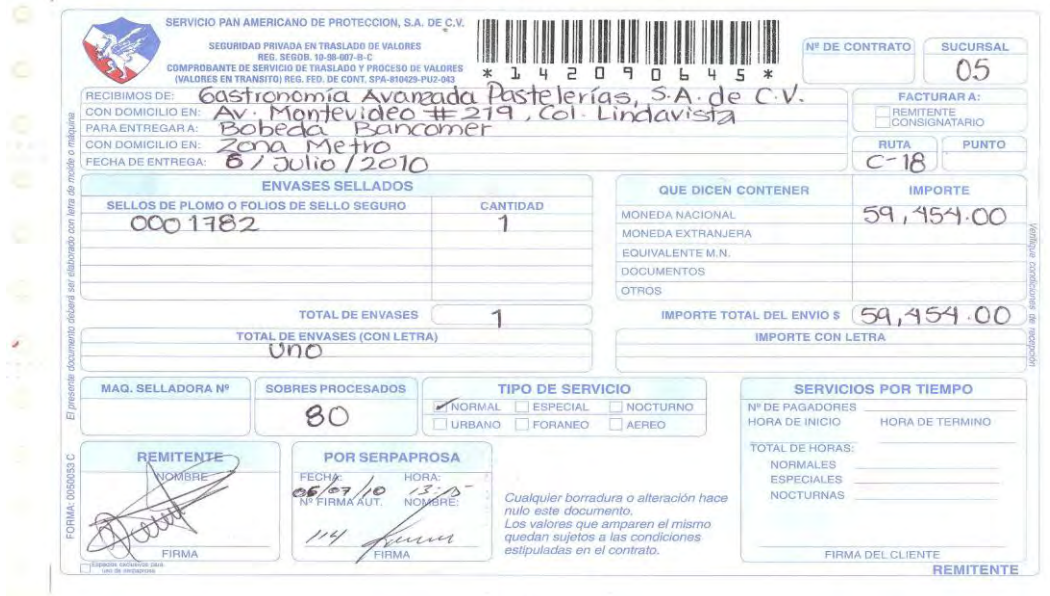 SERVICIO PAN AMERICANO DE PROTECCION, S.A. DE C.V.
SEGURIDAD PRIVADA EN TRASLADO DE VALORES
REG. SEGOB. 10-98-007-B-C
COMPROBANTE DE SERVICIO DE TRASLADO Y PROCESO DE VALORES
(VALORES EN TRANSITO) REG. FED. DE CONT. SPA-810429-PU2-043
*142090645*
Nº DE CONTRATO
SUCURSAL
05
RECIBIMOS DE: Gastronomía Avanzada Pastelerías, S.A. de C.V.
CON DOMICILIO EN: Av. Montevideo # 279, Col. Lindavista
PARA ENTREGAR A: Bobeda Bancomer
CON DOMICILIO EN: Zona Metro
FECHA DE ENTREGA: 6 / Julio / 2010
FACTURAR A:
REMITENTE
CONSIGNATARIO
RUTA PUNTO
C-18
ENVASES SELLADOS
SELLOS DE PLOMO O FOLIOS DE SELLO SEGURO CANTIDAD
0001782 1
TOTAL DE ENVASES 1
TOTAL DE ENVASES (CON LETRA)
Uno
QUE DICEN CONTENER IMPORTE
MONEDA NACIONAL 59,454.00
MONEDA EXTRANJERA
EQUIVALENTE M.N.
DOCUMENTOS
OTROS
IMPORTE TOTAL DEL ENVIO $ 59,454.00
IMPORTE CON LETRA
MAQ. SELLADORA Nº
SOBRES PROCESADOS
80
TIPO DE SERVICIO
NORMAL ESPECIAL NOCTURNO
URBANO FORANEO AEREO
SERVICIOS POR TIEMPO
Nº DE PAGADORES
HORA DE INICIO HORA DE TERMINO
TOTAL DE HORAS:
NORMALES
ESPECIALES
NOCTURNAS
FIRMA DEL CLIENTE
REMITENTE
NOMBRE
FIRMA
POR SERPAPROSA
FECHA: HORA:
06/07/10 13:15
Nº FIRMA AUT. NOMBRE:
114
FIRMA
Cualquier borradura o alteración hace
nulo este documento.
Los valores que amparen el mismo
quedan sujetos a las condiciones
estipuladas en el contrato.
REMITENTE
El presente documento deberá ser elaborado con letra de molde o máquina
FORMA: 0050053 C
Verifique condiciones de recepción
Espacios exclusivos para
uso de serpaprosa